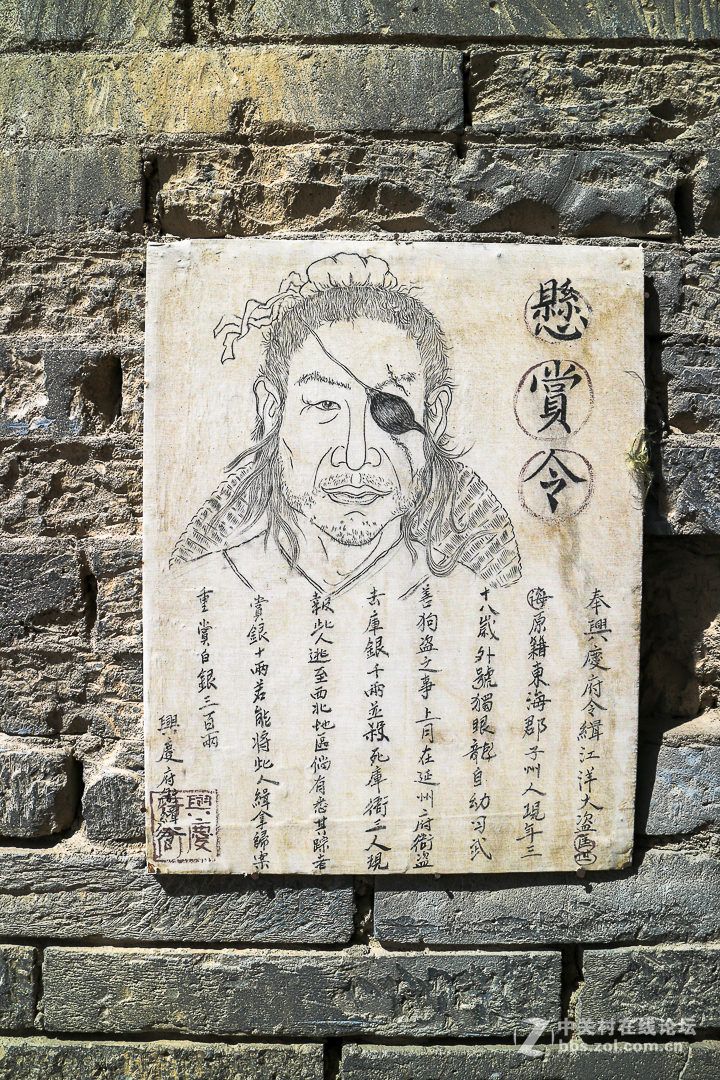 懸賞令
奉興慶府令緝江洋大盜馬四
海原籍東海郡子州人現年三
十八歲外號獨眼龍自幼习武
善狗盜之事上月在延州府衙盜
去庫銀千兩並殺死庫衙三人現
報此人逃至西北地區倘有悉其踪者
賞銀十兩若能將此人緝拿歸案
重賞白銀三百兩
興慶府
興慶
衙
中关村在线论坛
bbs.zol.com.cn